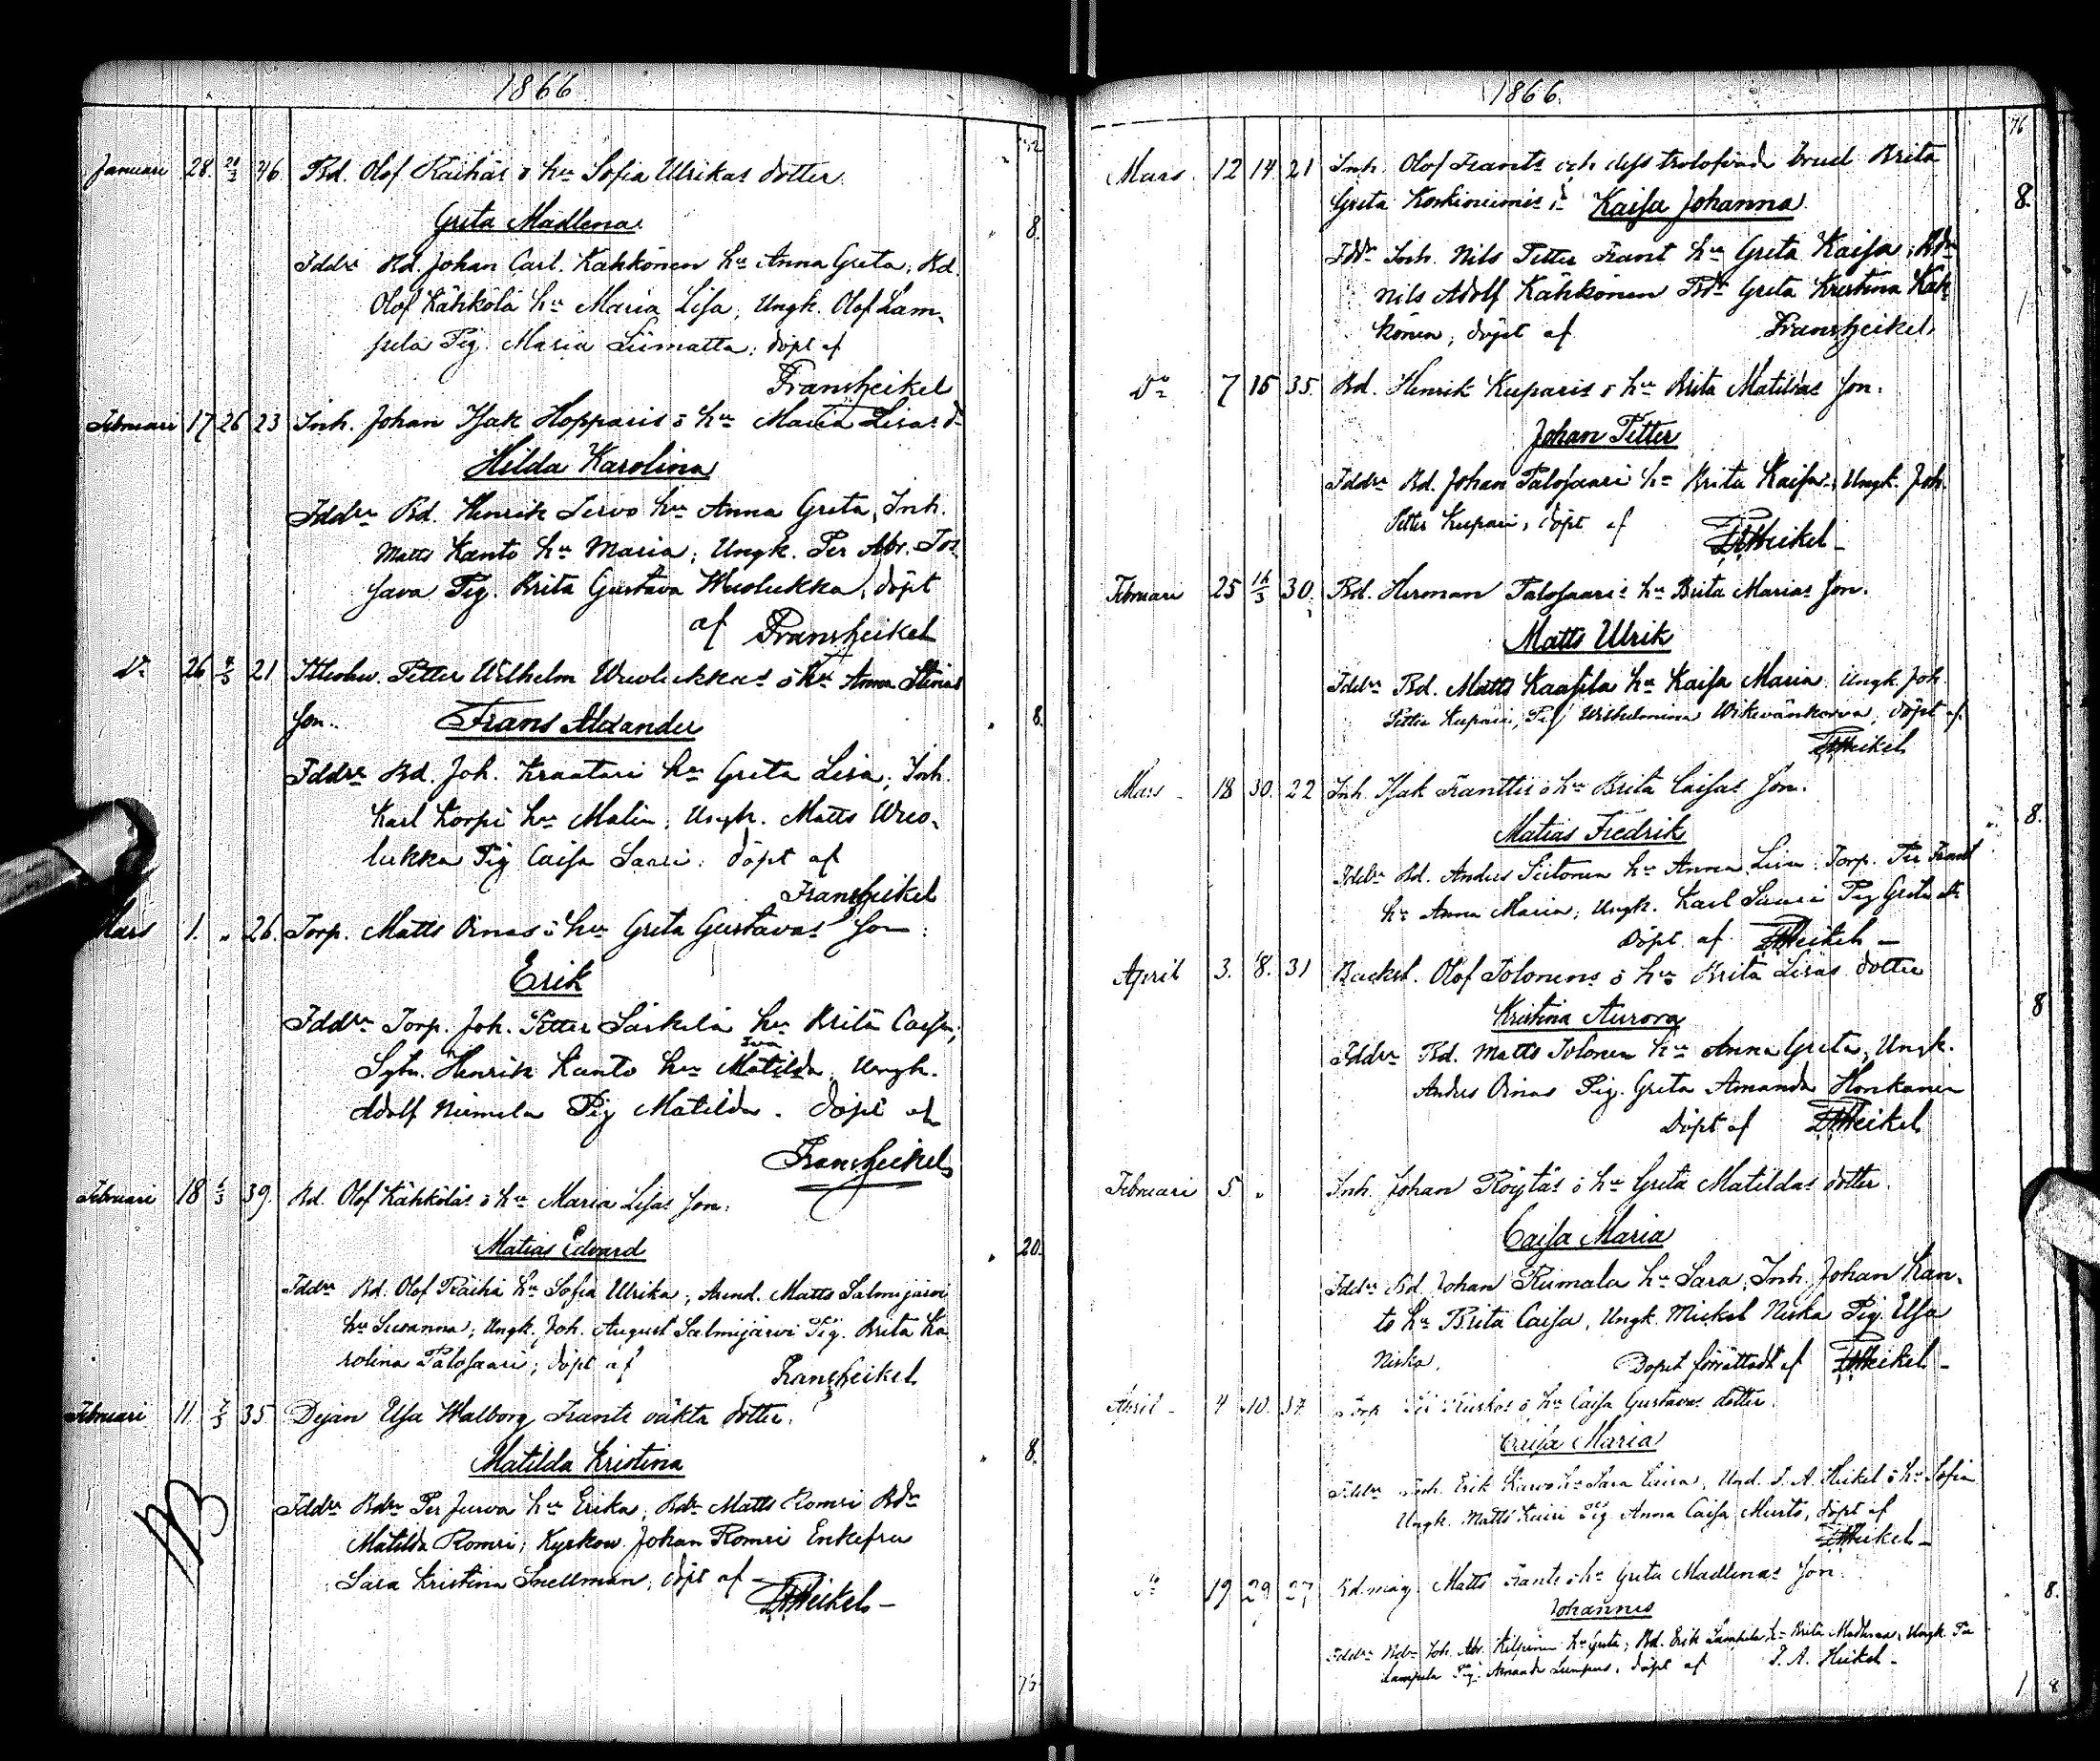 1866
Januari 28. 20/2 46. Bd. Olof Räihäs o hu Sofia Ulrikas dotter.
Greta Madlena 8.
Fddre Bd. Johan Carl. Kähkönen hu Anna Greta; Bd.
Olof Kähkölä hu Maria Lisa, Ungk. Olof Lam-
pela Pig. Maria Liimatta; döpt af
Frans Heikel
Februari 17 26 23 Inh. Johan Isak Hopparis o hu Maria Lisas d-
Hilda Karolina
Fddre Bd. Henrik Servo hu Anna Greta, Inh.
Matts Kanto hu Maria; Ungk. Per Abr.
Pig. Brita Gustava Wuolukka, döpt
af Frans Heikel
Do 26 4/3 21 Petter Wilhelm Wuolukkas o hu Anna Stinas
Son. Frans Alexander 8.
Fddre Bd. Joh. Kraatari hu Greta Lisa; Inh.
Karl Korpi hu Malin; Ungk. Matts Wuo-
lukka Pig Caisa Saari. döpt af
Frans Heikel
Mars 1. " 26. Torp. Matts Oinas o hu Greta Gustavas Son.
Erik
Fddre Torp. Joh. Petter Säskelä hu Brita Caisa,
Eva
Sytn. Henrik Kanto hu Matilda, Ungk.
Adolf Niemela Pig Matilda. döpt af
Frans Heikel
Februari 18 39. Bd. Olof Kähköläs o hu Maria Lisas Son.
Matias Edvard 20.
Fddre Bd. Olof Räihä hu Sofia Ulrika; Arend. Matts Salmijärvi
hu Susanna; Ungk. Joh. August Salmijärvi Pig. Brita Ka
rolina Palosaari; döpt af Frans Heikel
Februari 11 7/3 35 Dejan Elsa Walborg Frants oäkta dotter.
Matilda Kristina 8.
Fddre Bdn Per Jurva hu Erika; Bdn Matts Romsi Bdn
Matilda Romsi; Kyrkov. Johan Romsi Enkefru
Sara Kristina Snellman; döpt af
FAHeikel
1866
76
Mars. 12 14 21 Inh. Olof Frants och dess trolofvade brud Brita
Greta Koskiniemis d Kaisa Johanna 8.
Fddr Inh. Nils Petter Frant hu Greta Kaisa; Bdn
Nils Adolf Kähkönen Bdr Greta Kristina Käh-
könen; döpt af Frans Heikel
Do 7 15 35. Bd. Henrik Kuparis o hu Brita Matildas Son.
Johan Petter
Fddre Bd. Johan Palosaari hu Brita Kaisa, Ungk. Joh.
Petter Kupari, döpt af FAHeikel
Februari 25 30. Bd. Herman Palosaaris hu Brita Marias Son.
Matts Ulrik
Fddre Bd. Matts Kaasila hu Kaisa Maria. Ungk. Joh.
Petter Kupari; Pig Wilhelmina Wikevänkorva, döpt af
FAHeikel
Mars 18 30. 22 Inh. Isak Franttis o hu Brita Caisas Son.
Matias Fredrik 8.
Fddre Bd. Anders Siitonen hu Anna Lisa, Torp. Per Frant
hu Anna Maria; Ungk. Karl Saari Pig Greta
Döpt af FAHeikel
April 3. 8. 31 Backst. Olof Tolonens o hu Brita Lisas dotter
Kristina Aurora 8
Fddre Bd. Matts Tolonen hu Anna Greta, Ungk.
Anders Oinas Pig. Greta Amanda Honkanen
Döpt af FAHeikel
Februari 5. " Inh. Johan Röytäs o hu Greta Matildas dotter.
Caisa Maria
Fddre Bd. Johan Riimala hu Sara, Inh. Johan Kan-
to hu Brita Caisa, Ungk. Mickel Niska Pig Elsa
Niska. Dopet förrättadt af FAHeikel
April 4 10. 37. Torp. hu Caisa Gustavas dotter.
Caisa Maria
Fddre Inh. Erik hu Sara Caisa, Und. F. A. Heikel o hu Sofia
Ungk. Matts Pig Anna Caisa Murto, döpt af
FAHeikel
Do 19 29 27 Bd.måg. Matts Frants o hu Greta Madlenas Son. 8.
Johannes
Fddre Bdn Joh. Abr. Kilpinen hu Greta; Bd. Erik Lampela hu Brita Madlena, Ungk. Per
Lampela Pig. Amanda, döpt af F. A. Heikel